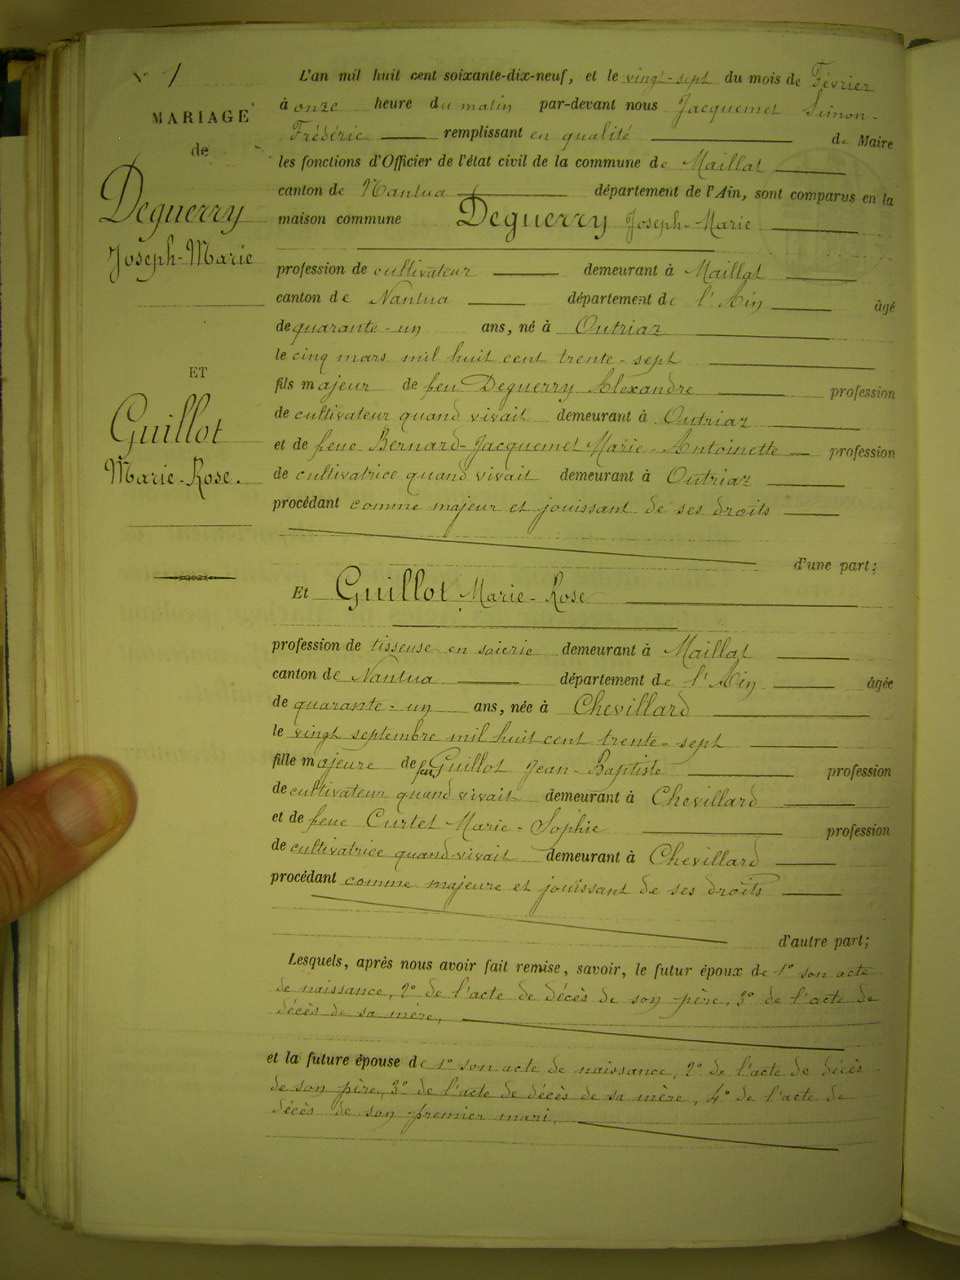 N° 1
MARIAGE
de
Deguerry
Joseph-Marie
ET
Guillot
Marie-Rose.
L'an mil huit cent soixante-dix-neuf, et le vingt-sept du mois de Février
à onze heure du matin par-devant nous Jacquemet Simon-
Frédéric remplissant en qualité de Maire
les fonctions d'Officier de l'état civil de la commune de Maillat
canton de Nantua département de l'Ain, sont comparus en la
maison commune Deguerry Joseph-Marie
profession de cultivateur demeurant à Maillat
canton de Nantua département de l'Ain âgé
de quarante-un ans, né à Outriaz
le cinq mars mil huit cent trente-sept
fils majeur de feu Deguerry Alexandre profession
de cultivateur quand vivait demeurant à Outriaz
et de feue Bernard-Jacquemet Marie-Antoinette profession
de cultivatrice quand vivait demeurant à Outriaz
procédant comme majeur et jouissant de ses droits
d'une part;
Et Guillot Marie-Rose
profession de tisseuse en soierie demeurant à Maillat
canton de Nantua département de l'Ain âgée
de quarante-un ans, née à Chevillard
le vingt septembre mil huit cent trente-sept
fille majeure de feu Guillot Jean-Baptiste profession
de cultivateur quand vivait demeurant à Chevillard
et de feue Curtet-Marie-Sophie profession
de cultivatrice quand vivait demeurant à Chevillard
procédant comme majeure et jouissant de ses droits
d'autre part;
Lesquels, après nous avoir fait remise, savoir, le futur époux de 1° son acte
de naissance, 2° de l'acte de décès de son père, 3° de l'acte de
décès de sa mère,
et la future épouse de 1° son acte de naissance, 2° de l'acte de décès
de son père, 3° de l'acte de décès de sa mère, 4° de l'acte de
décès de son premier mari,